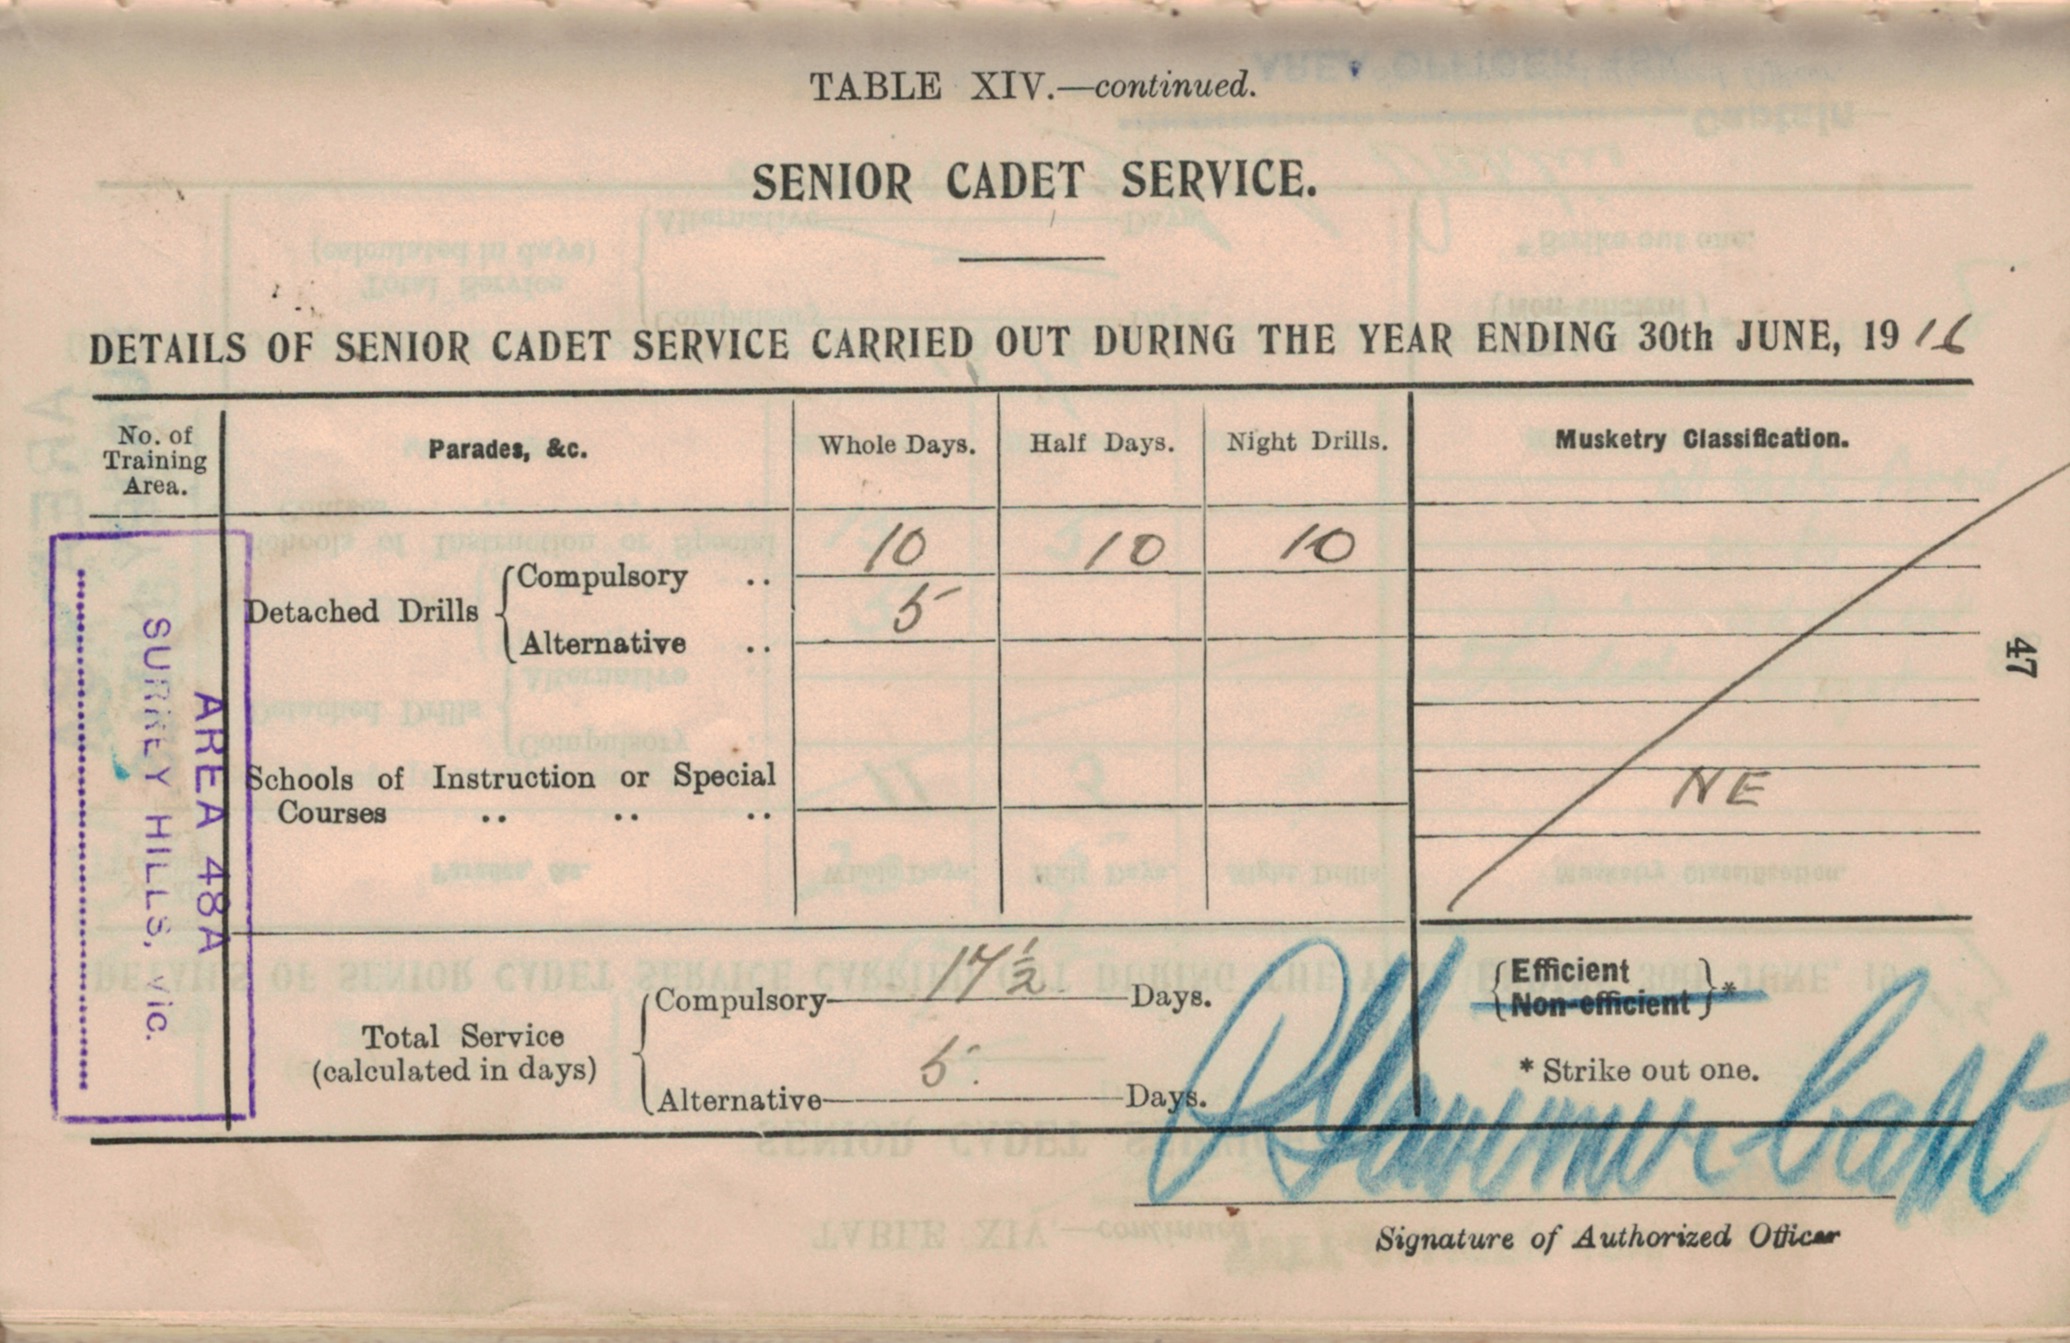 TABLE XIV.—continued.
SENIOR CADET SERVICE.
DETAILS OF SENIOR CADET SERVICE CARRIED OUT DURING THE YEAR ENDING 30th JUNE, 1916
No. of Training Area.
Parades, &c.
Whole Days.
Half Days.
Night Drills.
Musketry Classification.
AREA 48A
SURREY HILLS, Vic.
Detached Drills
Compulsory .. 10 10 10
Alternative .. 5
Schools of Instruction or Special
Courses .. .. ..
NE
Total Service
(calculated in days)
Compulsory 17½ Days.
Alternative 5 Days.
Efficient
Non-efficient *
* Strike out one.
Capt
Signature of Authorized Officer
47